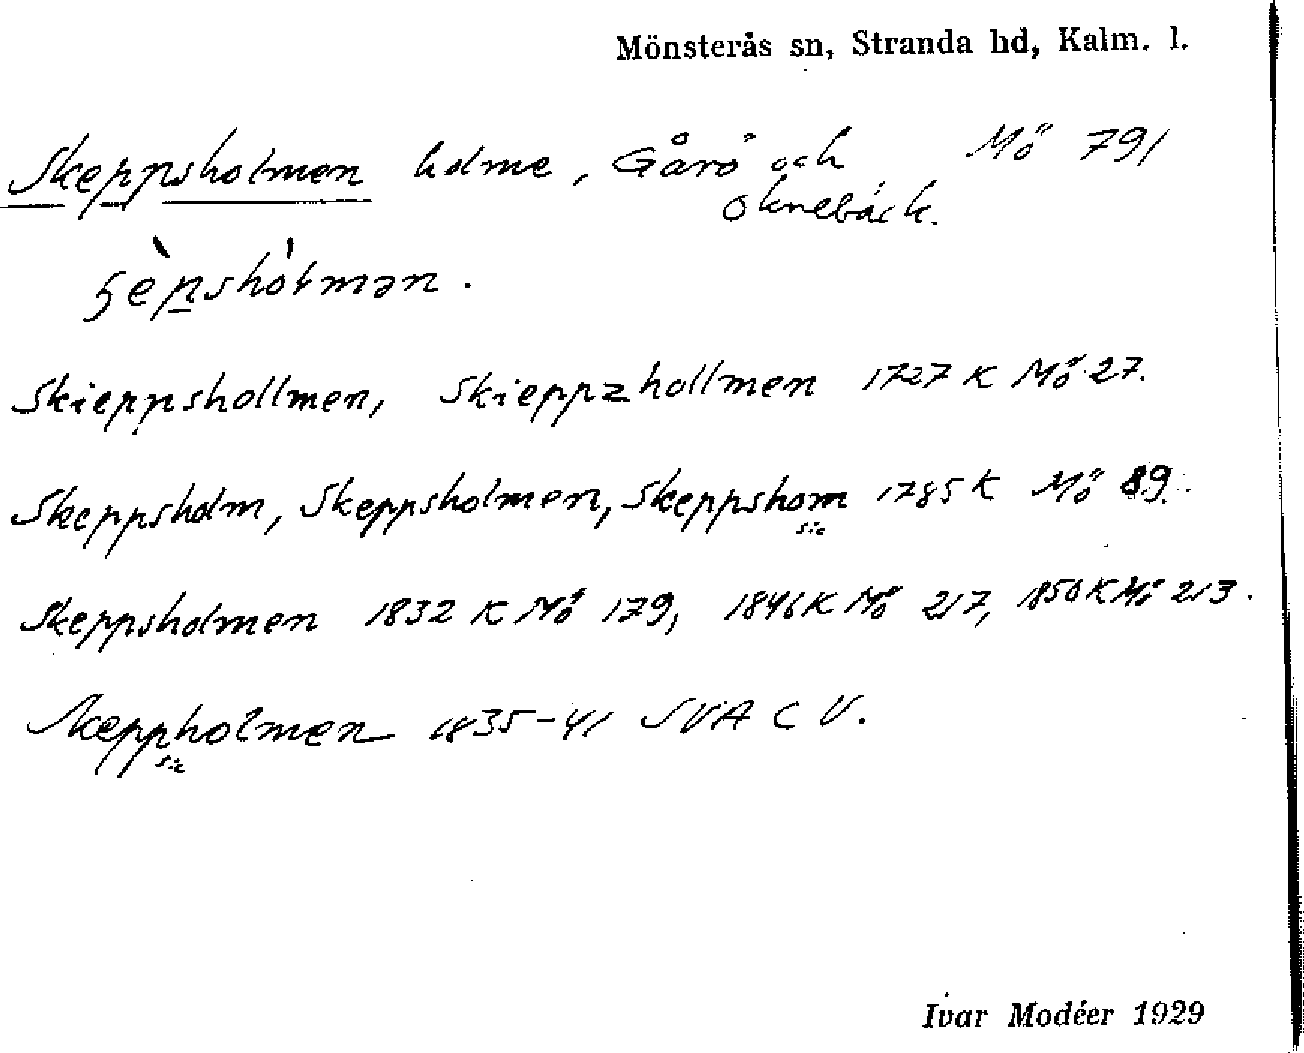 Mönsterås sn, Stranda hd, Kalm. l.
Skeppsholmen holme, Gårö och Mö 791
Oknebäck.
ʂèpshólmən.
Skieppshollmen, Skieppzhollmen 1727 K Mö 27.
Skeppsholm, Skeppsholmen, Skeppshom 1785 K Mö 89.
sic
Skeppsholmen 1832 K Mö 179, 1846 K Mö 217, 1850 K Mö 213.
Skeppholmen 1835-41 SVA C V.
sic
Ivar Modéer 1929